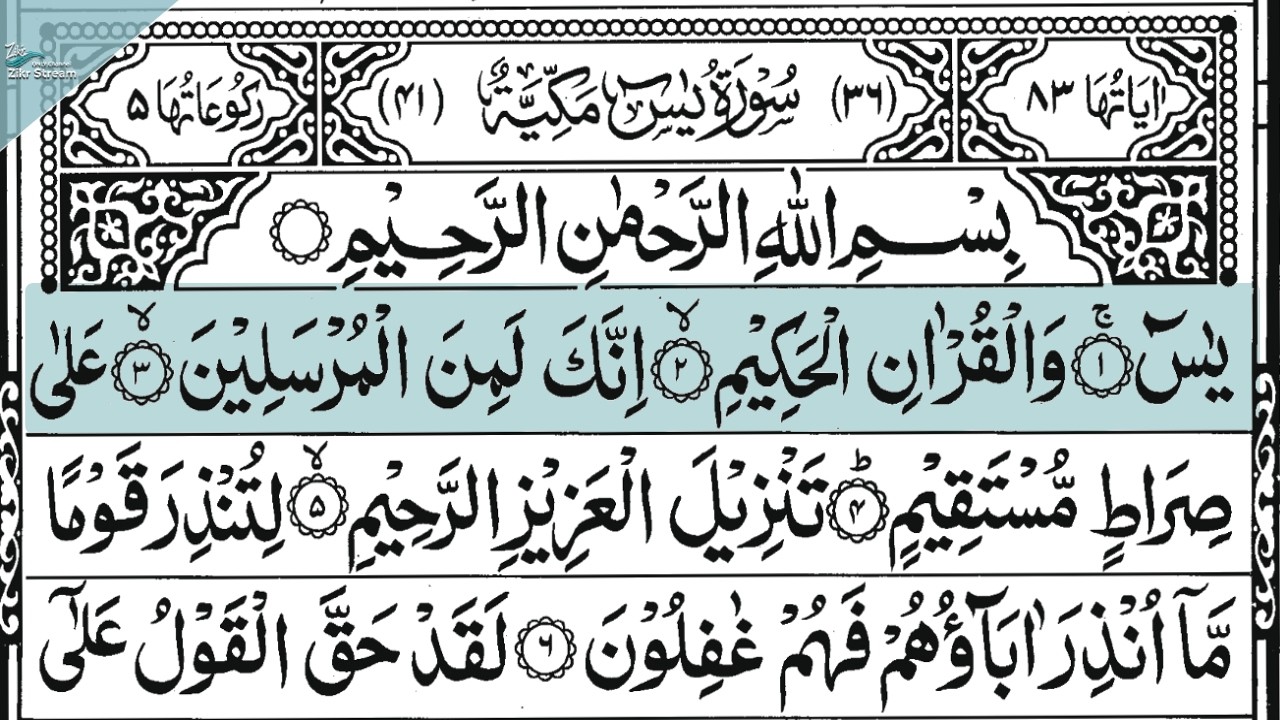 Zikr
Zikr Stream
اٰيَاتُهَا ٨٣
(٣٦) سُوْرَةُ يٰسٓ مَكِّيَّةٌ (٤١)
رُكُوْعَاتُهَا ٥
بِسْمِ اللّٰهِ الرَّحْمٰنِ الرَّحِيْمِ
يٰسٓ ۚ ﴿١﴾ وَالْقُرْاٰنِ الْحَكِيْمِ ۙ ﴿٢﴾ اِنَّكَ لَمِنَ الْمُرْسَلِيْنَ ۙ ﴿٣﴾ عَلٰى
صِرَاطٍ مُّسْتَقِيْمٍ ؕ ﴿۴﴾ تَنْزِيْلَ الْعَزِيْزِ الرَّحِيْمِ ۙ ﴿۵﴾ لِتُنْذِرَ قَوْمًا
مَّآ اُنْذِرَ اٰبَآؤُهُمْ فَهُمْ غٰفِلُوْنَ ﴿۶﴾ لَقَدْ حَقَّ الْقَوْلُ عَلٰٓى